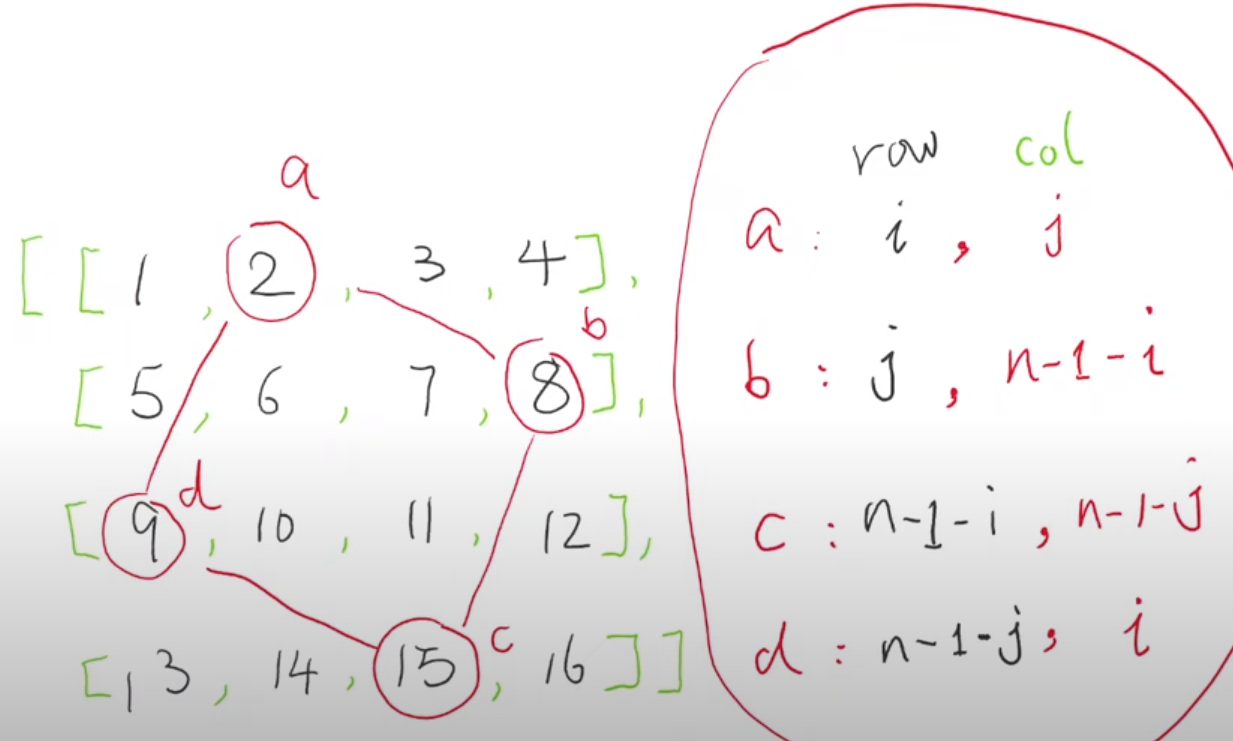 a
[ [ 1 , 2 , 3 , 4 ] ,
b
[ 5 , 6 , 7 , 8 ] ,
d
[ 9 , 10 , 11 , 12 ] ,
c
[ 13 , 14 , 15 , 16 ] ]
row col
a : i , j
b : j , n-1-i
c : n-1-i , n-1-j
d : n-1-j , i